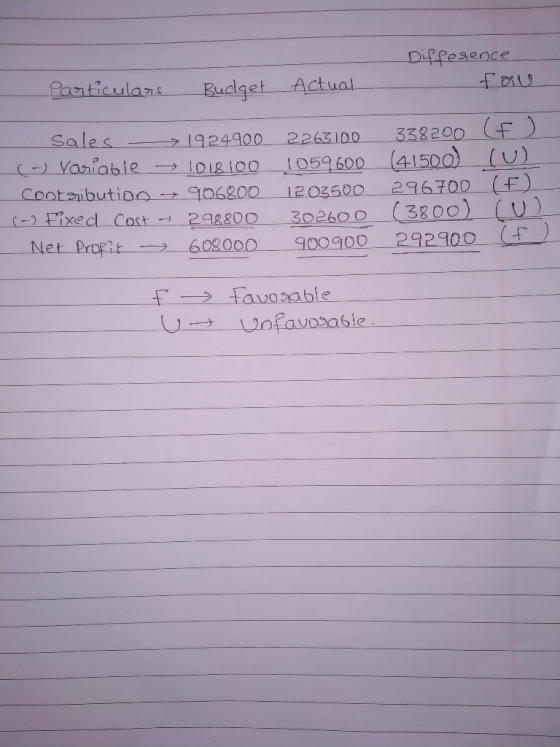 Difference
Particulars Budget Actual F or U
Sales → 1924900 2263100 338200 (F)
(-) Variable → 1018100 1059600 (41500) (U)
Contribution → 906800 1203500 296700 (F)
(-) Fixed Cost → 298800 302600 (3800) (U)
Net Profit → 608000 900900 292900 (F)
F → Favorable
U → Unfavorable.